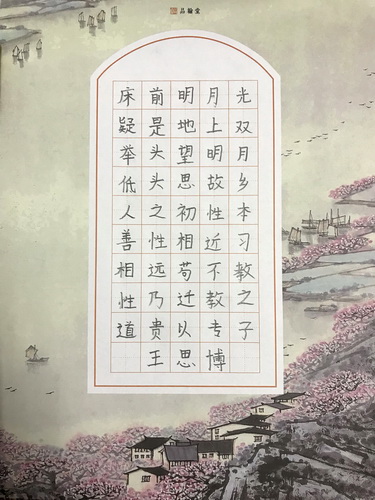 品翰堂
床前明月光
疑是地上双
举头望明月
低头思故乡
人之初性本
善性相近习
相远苟不教
性乃迁教之
道贵以专子
王思博